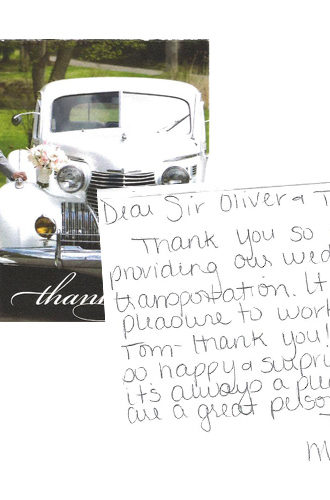 than
Dear Sir Oliver & T
Thank you so
providing our wed
transportation. It
pleasure to work
Tom- thank you!
so happy & surpri
it's always a ple
are a great perso
M